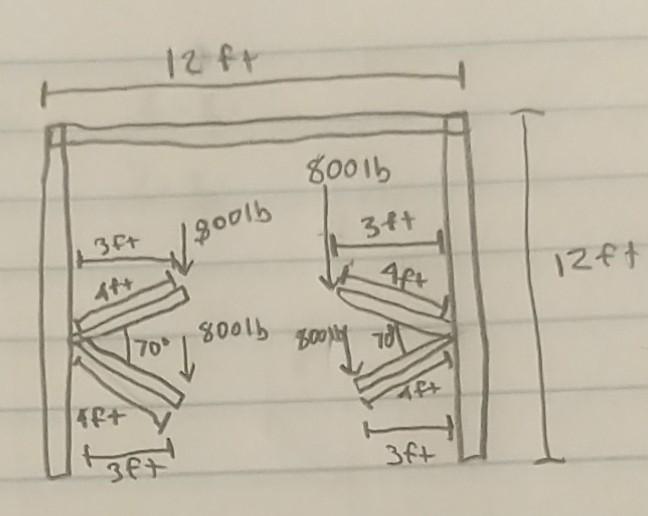 12 ft
800lb
800lb
3ft
3ft
4ft
4ft
12ft
70°
800lb
800lb
70°
4ft
4ft
3ft
3ft